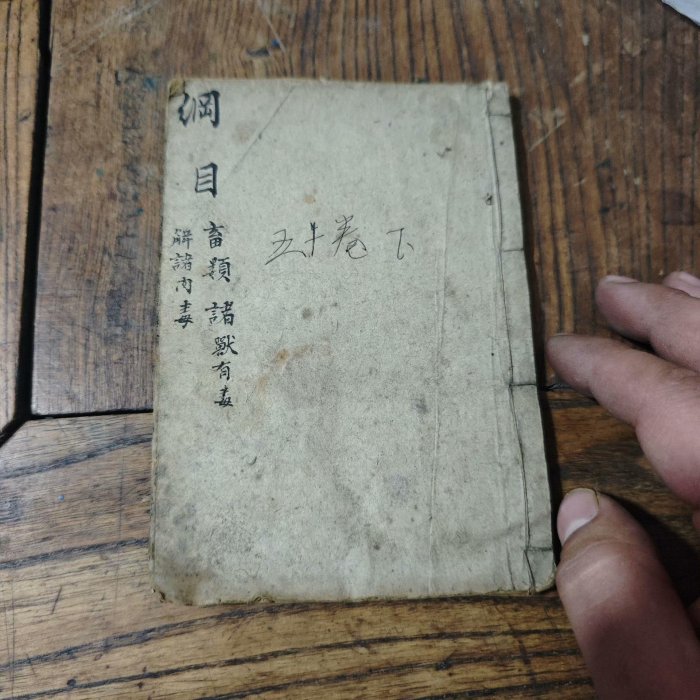 綱目
畜類 諸獸有毒
解諸肉毒
五十卷 下